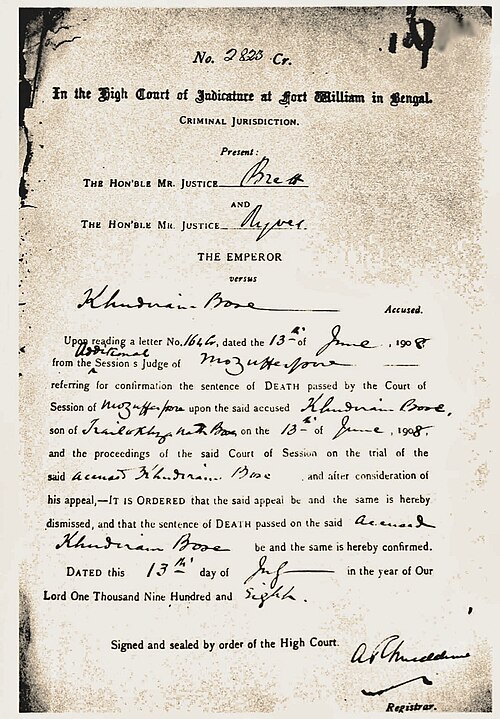 No. 2823 Cr.
In the High Court of Judicature at Fort William in Bengal.
CRIMINAL JURISDICTION.
Present:
THE HON'BLE MR. JUSTICE Brett
AND
THE HON'BLE MR. JUSTICE Ryves.
THE EMPEROR
versus
Khudiram Bose Accused.
Upon reading a letter No. 1646, dated the 13th of June, 1908
Additional
from the Session s Judge of Mozufferpore
referring for confirmation the sentence of DEATH passed by the Court of
Session of Mozufferpore upon the said accused Khudiram Bose,
son of Trailokhya Nath Bose, on the 13th of June, 1908,
and the proceedings of the said Court of Session on the trial of the
said accused Khudiram Bose, and after consideration of
his appeal,—IT IS ORDERED that the said appeal be and the same is hereby
dismissed, and that the sentence of DEATH passed on the said accused
Khudiram Bose be and the same is hereby confirmed.
DATED this 13th day of July in the year of Our
Lord One Thousand Nine Hundred and Eight.
Signed and sealed by order of the High Court.
Registrar.